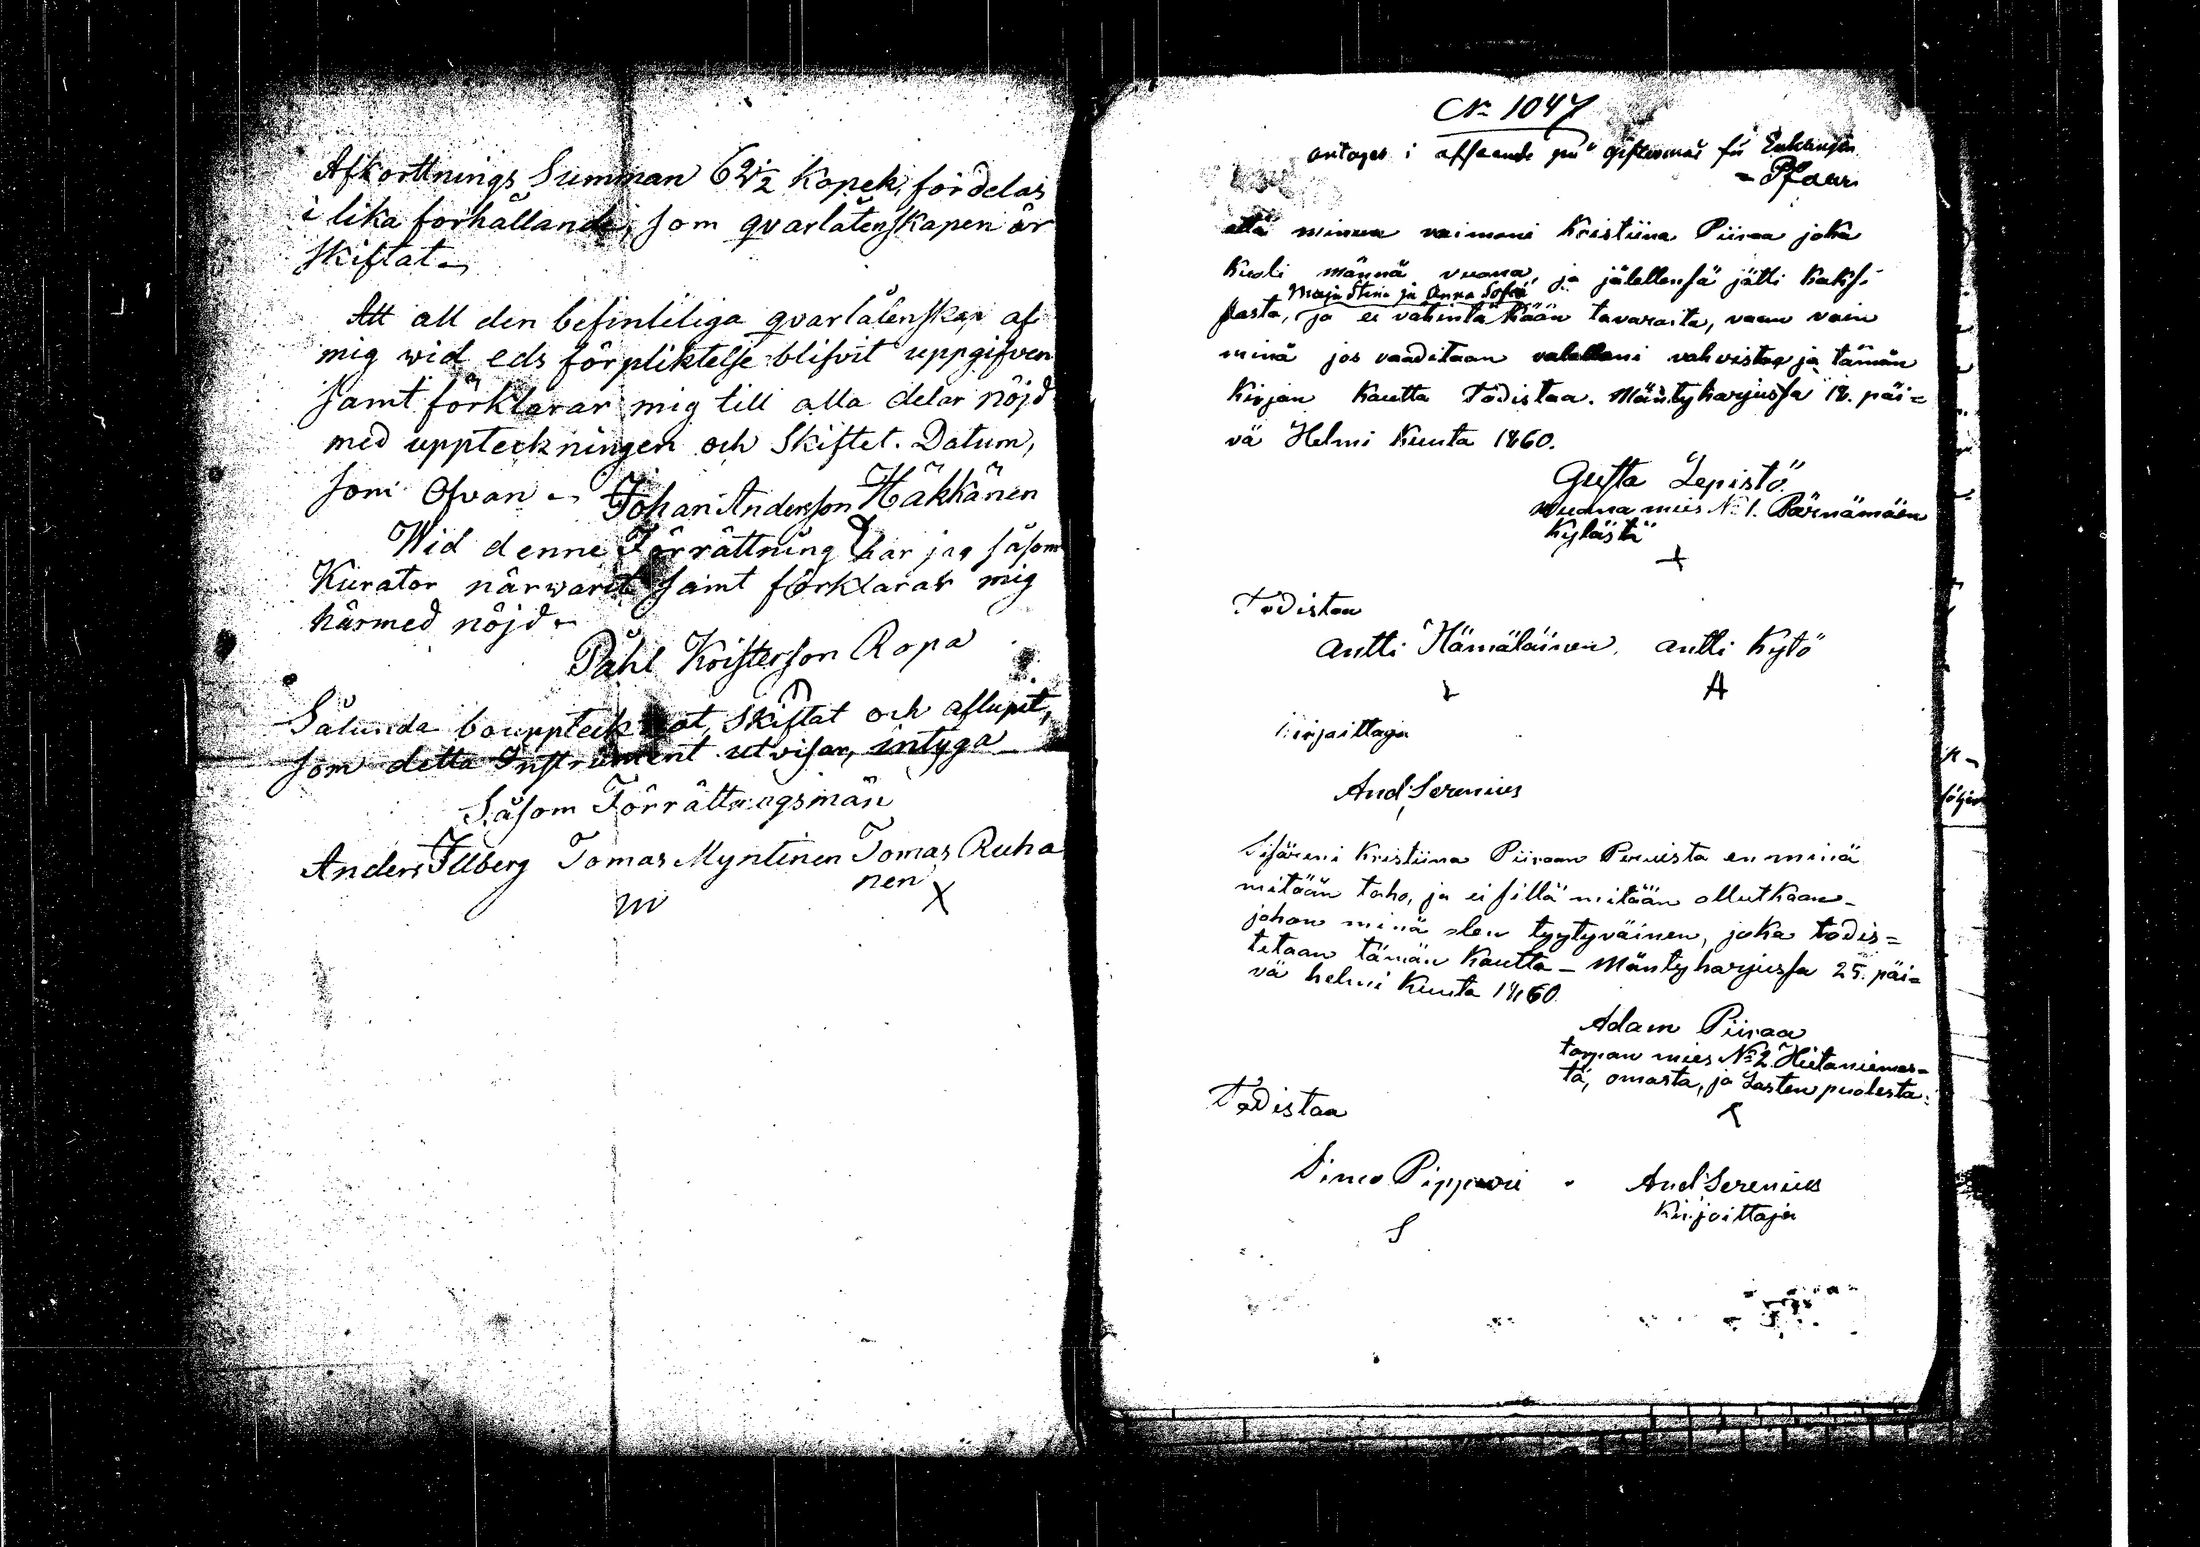 Afkorttnings Summan 62½ Kopek, fördelas
i lika förhållande, som qvarlåtenskapen är
skiftat
Att all den befinteliga qvarlåtenskap af
mig wid eds förpliktelse blifvit uppgifven
samt förklarar mig till alla delar nöjd
med uppteckningen och Skiftet. Datum,
som Ofvan Johan Andersson Häkkänen
Wid denne Förrättning har jag såsom
Kurator närwarit samt förklarar mig
härmed nöjd
Påhl Kristersson Ropa
Sålunda bouppteck at, skiftat och aflupit,
som detta Instrument utvisar, intyga
Såsom Förrättningsmän
Anders Illberg Tomas Myntinen Tomas Ruha
nen
m X
No 1047
antages i afseende på giftermål för Enklingen
että minun vaimoni Kristiina Piiraa joka
Kuoli männä vuona, ja jälellensä jätti Kaksi
Maja Stina ja Anna Sofia
lasta, ja ei vähintäkään tavaraita, vaan vain
minä jos vaaditaan valallani vahvistaa ja tämän
Kirjan Kautta Todistaa. Mäntyharjussa 18. päi=
vä Helmi Kuuta 1860.
Gusta Lepistö
vuona mies No 1. Pärnämäen
Kylästä
+
Todistaa
Antti Hämäläinen. Antti Kytö
A
Kirjoittaja
And. Serenius
Sisäreni Kristiina Piiraan Peruista en minä
mitään taho, ja ei sillä mitään ollutkaan
johon minä olen tyytyväinen, joka todis=
tetaan tämän Kautta - Mäntyharjussa 25. päi=
vä helmi Kuuta 1860.
Adam Piiraa
torpan mies No 2 Hietaniemes=
tä, omasta, ja Lasten puolesta.
Todistaa
Simo Pippuri . And Serenius
S Kirjoittaja